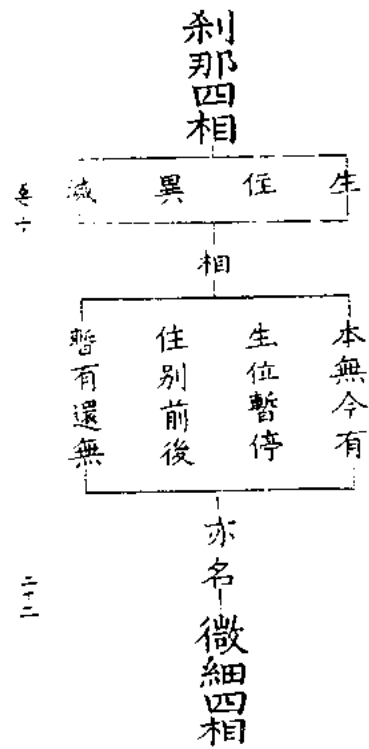 刹那四相
生
住
異
滅
相
本無今有
生位暫停
住別前後
暫有還無
亦名
微細四相
二十二